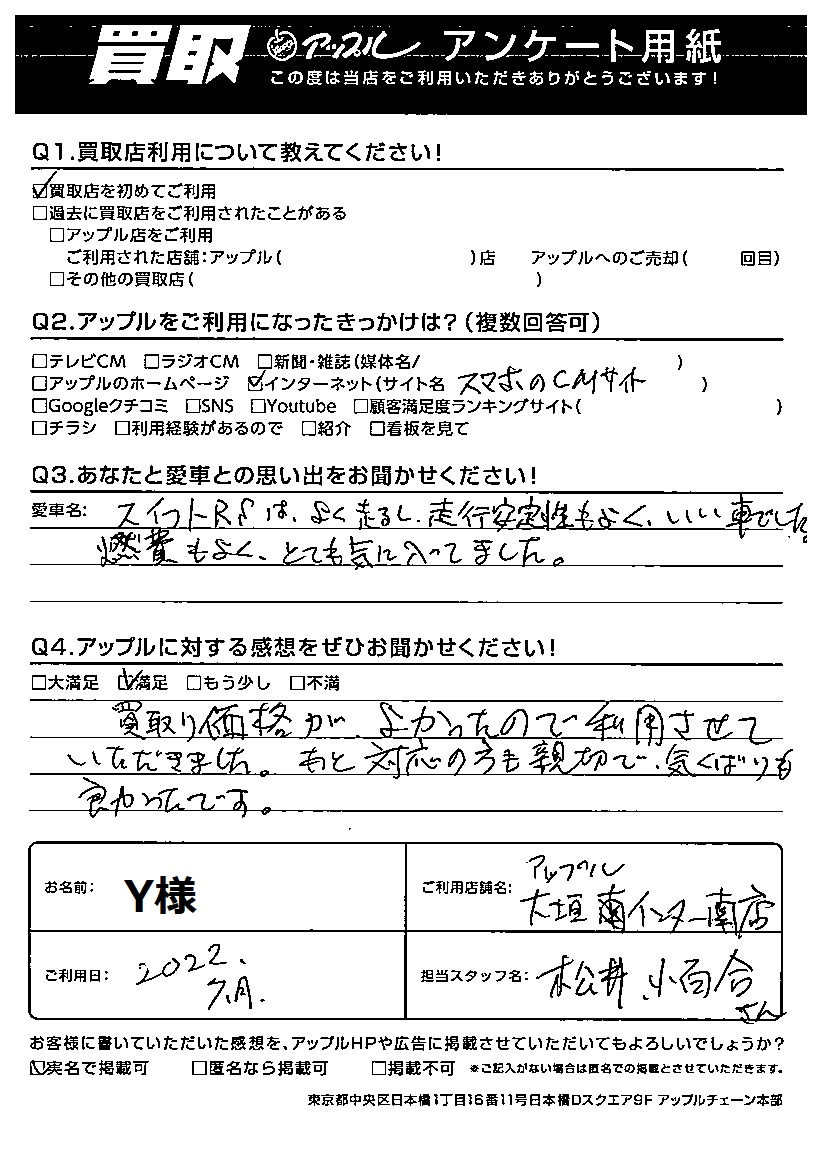 買取 アップル アンケート用紙
この度は当店をご利用いただきありがとうございます!
Q1.買取店利用について教えてください!
☑買取店を初めてご利用
□過去に買取店をご利用されたことがある
□アップル店をご利用
ご利用された店舗:アップル( )店 アップルへのご売却( 回目)
□その他の買取店( )
Q2.アップルをご利用になったきっかけは?(複数回答可)
□テレビCM □ラジオCM □新聞・雑誌(媒体名/ )
□アップルのホームページ ☑インターネット(サイト名 スマホのCMサイト )
□Googleクチコミ □SNS □Youtube □顧客満足度ランキングサイト( )
□チラシ □利用経験があるので □紹介 □看板を見て
Q3.あなたと愛車との思い出をお聞かせください!
愛車名: スイフトRSは、よく走るし、走行安定性もよく、いい車でした。
燃費もよく、とても気に入ってました。
Q4.アップルに対する感想をぜひお聞かせください!
□大満足 ☑満足 □もう少し □不満
買取り価格が、よかったので利用させて
いただきました。もと対応の方も親切で、気くばりも
良かったです。
お名前: Y様
ご利用店舗名: アップル
大垣インター南店
ご利用日: 2022.
7月.
担当スタッフ名: 松井 小百合
さん
お客様に書いていただいた感想を、アップルHPや広告に掲載させていただいてもよろしいでしょうか?
☑実名で掲載可 □匿名なら掲載可 □掲載不可 ※ご記入がない場合は匿名での掲載とさせていただきます。
東京都中央区日本橋1丁目16番11号日本橋Dスクエア9F アップルチェーン本部